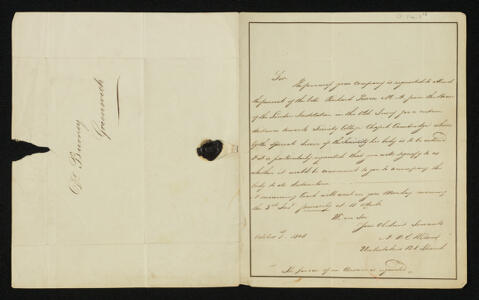 Dr Burney
Greenwich
Sir
The favour of your Company is requested to attend
the funeral of the late Richard Porson M.A. from the House
of the London Institution in the Old Jewry for a certain
distance towards Trinity College Chapel Cambridge where
by the Special desire of the Society his body is to be interred
P.S. it is particularly requested that you will signify to us
whether it would be convenient to you to accompany the
body to its destination
A mourning Coach will wait on you Monday morning
the 3rd Inst. precisely at 11 o'Clock
We are Sir
Your Obedient Servants
October 1st 1808
Undertakers Strand
The favor of an Answer is requested